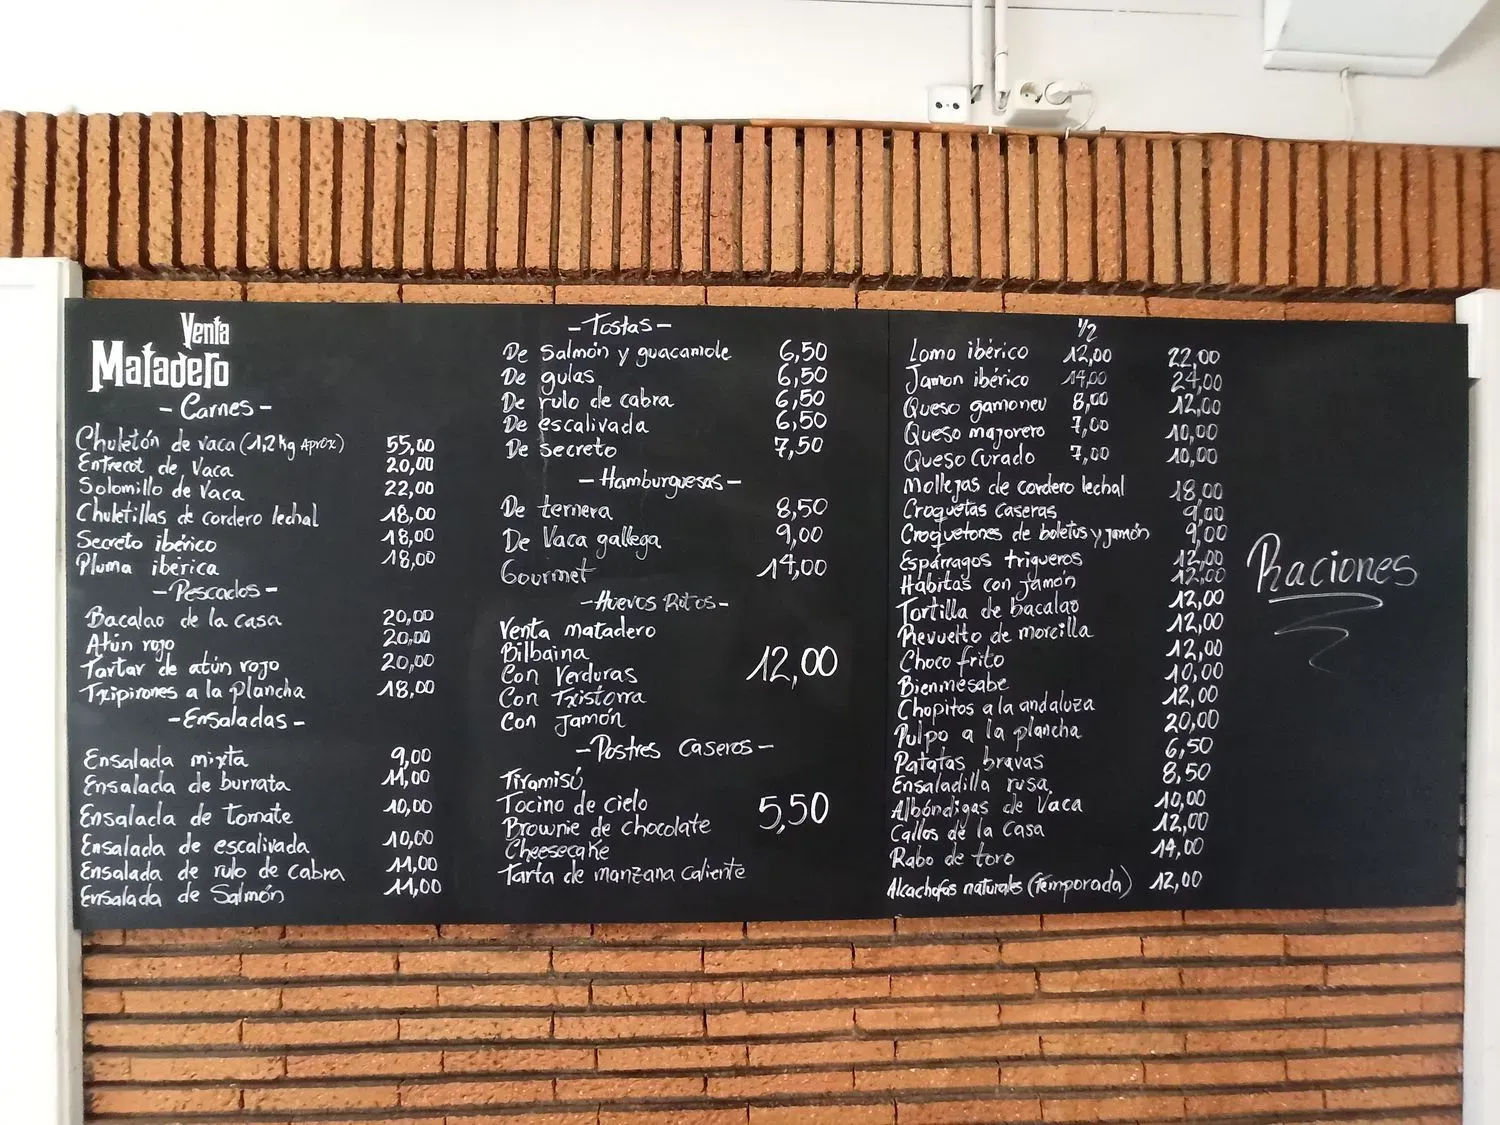 Venta
Matadero
- Carnes -
Chuletón de vaca (1,2 kg Aprox) 55,00
Entrecot de Vaca 20,00
Solomillo de Vaca 22,00
Chuletillas de cordero lechal 18,00
Secreto ibérico 18,00
Pluma ibérica 18,00
- Pescados -
Bacalao de la casa 20,00
Atún rojo 20,00
Tartar de atún rojo 20,00
Txipirones a la plancha 18,00
- Ensaladas -
Ensalada mixta 9,00
Ensalada de burrata 11,00
Ensalada de tomate 10,00
Ensalada de escalivada 10,00
Ensalada de rulo de cabra 11,00
Ensalada de Salmón 11,00
- Tostas -
De Salmón y guacamole 6,50
De gulas 6,50
De rulo de cabra 6,50
De escalivada 6,50
De secreto 7,50
- Hamburguesas -
De ternera 8,50
De Vaca gallega 9,00
Gourmet 14,00
- Huevos Rotos -
Venta matadero
Bilbaina
Con Verduras 12,00
Con Txistorra
Con jamón
- Postres Caseros -
Tiramisú
Tocino de cielo 5,50
Brownie de chocolate
Cheesecake
Tarta de manzana caliente
1/2
Lomo ibérico 12,00 22,00
Jamon ibérico 14,00 24,00
Queso gamoneu 8,00 12,00
Queso majorero 7,00 10,00
Queso Curado 7,00 10,00
Mollejas de cordero lechal 18,00
Croquetas caseras 9,00
Croquetones de boletus y jamón 9,00
Espárragos trigueros 12,00
Habitas con jamón 12,00
Tortilla de bacalao 12,00
Revuelto de morcilla 12,00
Choco frito 12,00
Bienmesabe 10,00
Chopitos a la andaluza 12,00
Pulpo a la plancha 20,00
Patatas bravas 6,50
Ensaladilla rusa 8,50
Albóndigas de Vaca 10,00
Callos de la Casa 12,00
Rabo de toro 14,00
Alcachofas naturales (Temporada) 12,00
Raciones